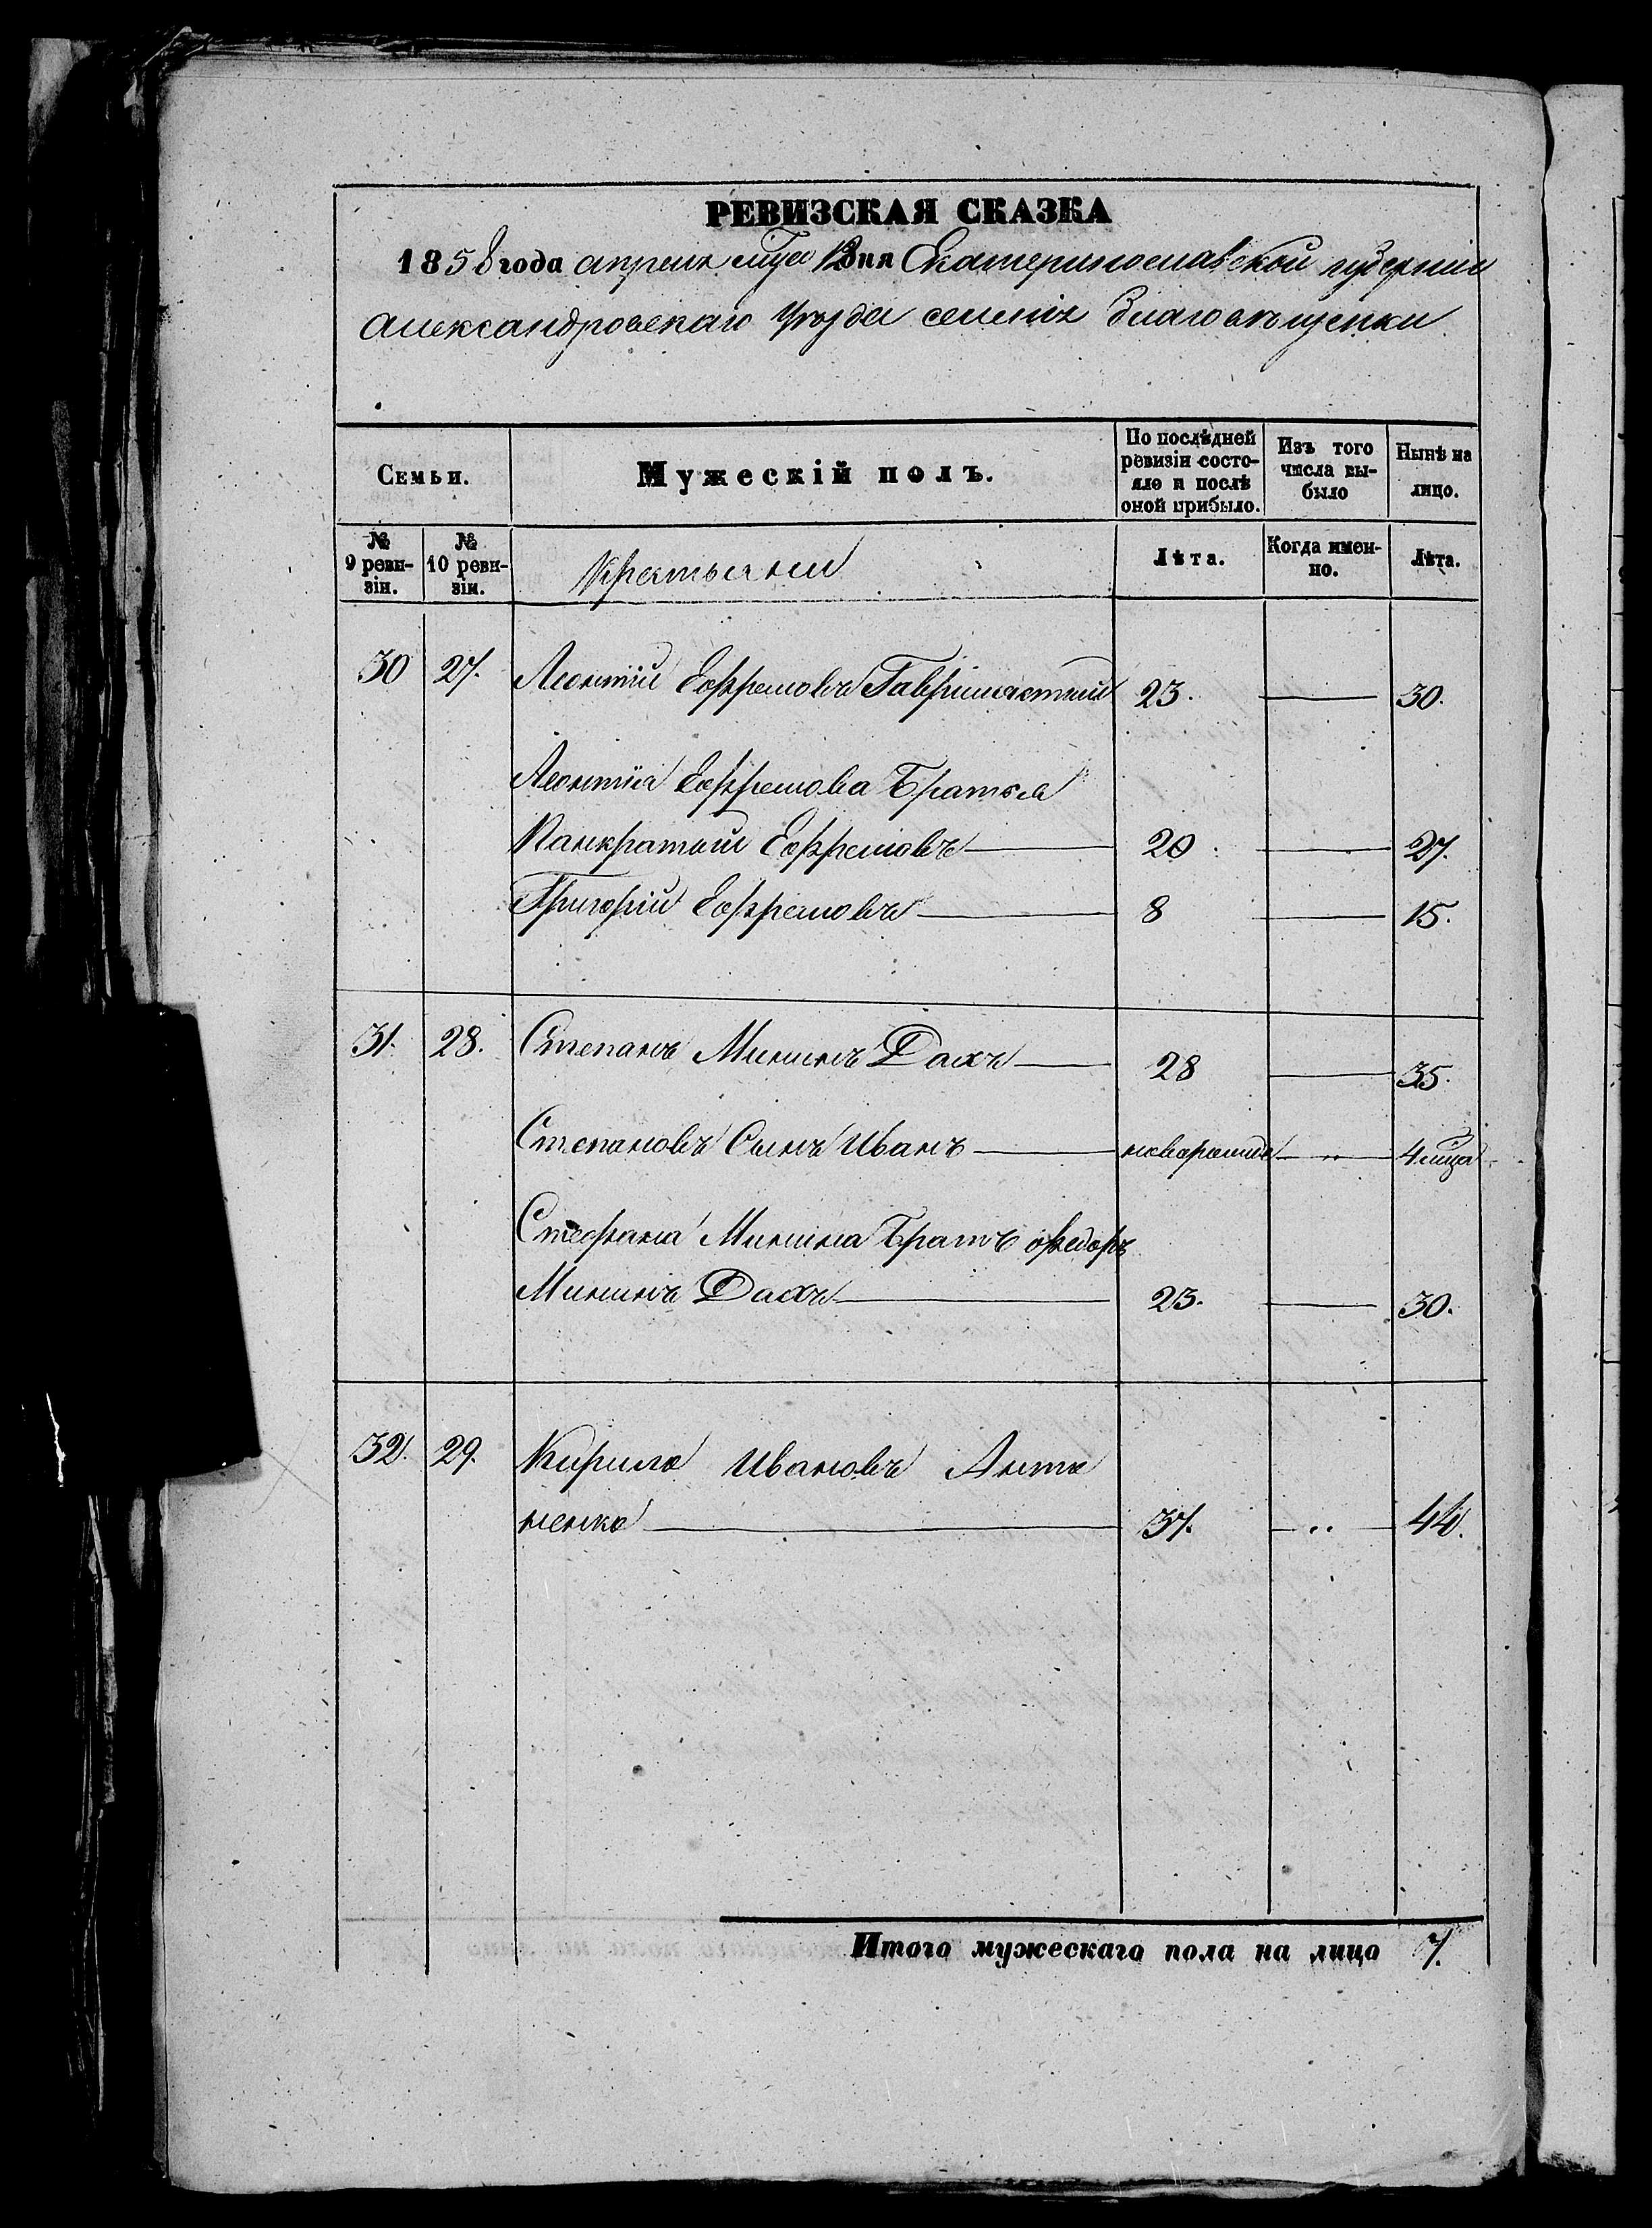 РЕВИЗСКАЯ СКАЗКА
1858 года апреля мца 12 дня Екатеринославской губерніи
Александровскаго уѣзда селенія Благовѣщенки
Семьи.
Мужескій полъ.
По послѣдней ревизіи состояло и послѣ оной прибыло.
Изъ того числа выбыло
Нынѣ на лицо.
№ 9 ревизіи.
№ 10 ревизіи.
Крестьяни
Лѣта.
Когда именно.
Лѣта.
30 27. Леонтій Ефремовъ 23. 30.
Леонтія Ефремова Братья
Панкратий Ефремовъ 20 27.
Григорій Ефремовъ 8 15.
31. 28. Степанъ Мининъ Дахъ 28 35.
Степановъ Сынъ Иванъ 4 мца
Стефана Минина Братъ Федоръ
Мининъ Дахъ 23. 30.
32. 29. Кирило Ивановъ Анто
ненко 37. 44.
Итого мужескаго пола на лицо 7.